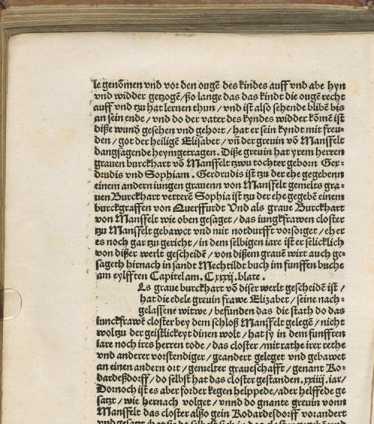 le genōmen vnd vor den ougē des kindes auff vnd abe hyn
vnd widder getzogē/ ßo lange das das kindt die ougē recht
auff vnd tzu hat lernen thun/ vnd ist also sehende blibē bis
an sein ende/ vnd do der vater des kyndes widder kōmē ist
diße wunð gesehen vnd gehort/ hat er sein kyndt mit freu-
den/ got der heiligē Elizabet/ vn̄ der greuin vō Manßfelt
dangsagende heymgetragen. Diße greuin hat yrem herren
grauen burckhart vō Manßfelt tzwu tochter geborn Ger-
drudis vnd Sophiam. Gerdrudis ist tzu der ehe gegebenn
einem andern iungen grauenn von Manßfelt gemelts gra-
uen Burckhart vetterē Sophia ist tzu der ehe gegebē einem
burckgraffen von Querffurdt Vnd als graue Burckhart
von Manßfelt wie oben gesaget/ das iungkfrawen closter
tzu Manßfelt gebawet vnd mit notdurfft vorsorget/ eher
es noch gar tzu gericht/ in dem selbigen iare ist er selicklich
von dißer werlt gescheidē/ von dißem grauē wirt auch ge-
sageth hirnach in sandt Mechtildt buch im funfften buche
am eylfften Capitel am. C.xxxij.blate.
Es graue burckhart vō diser werlt gescheidē ist/
hat die edele greuin frawe Elizabet/ seine nach-
gelassene witwe/ befunden das die stath do das
iunckfrawē closter bey dem schloß Manßfelt gelegē/ nicht
woltzu der geistlickeyt dinen wolt/ hat sy in dem funfften
iare noch ires herren tode/ das closter/ mit rathe irer rethe
vnd anderer vorstendiger/ geandert geleget vnd gebawet
an einen andern ort/ gemelter graueschafft/ genant Ro-
dardeßdorff/ do selbst hat das closter gestanden. xxiiij. iar/
Dornoch ist es aber forder kegen helppede/ aber helffede ge-
satzt/ wie hernach volget/ vnnd do gnante greuin vonn
Manßfelt das closter alßo gein Rodardesdorff vorandert